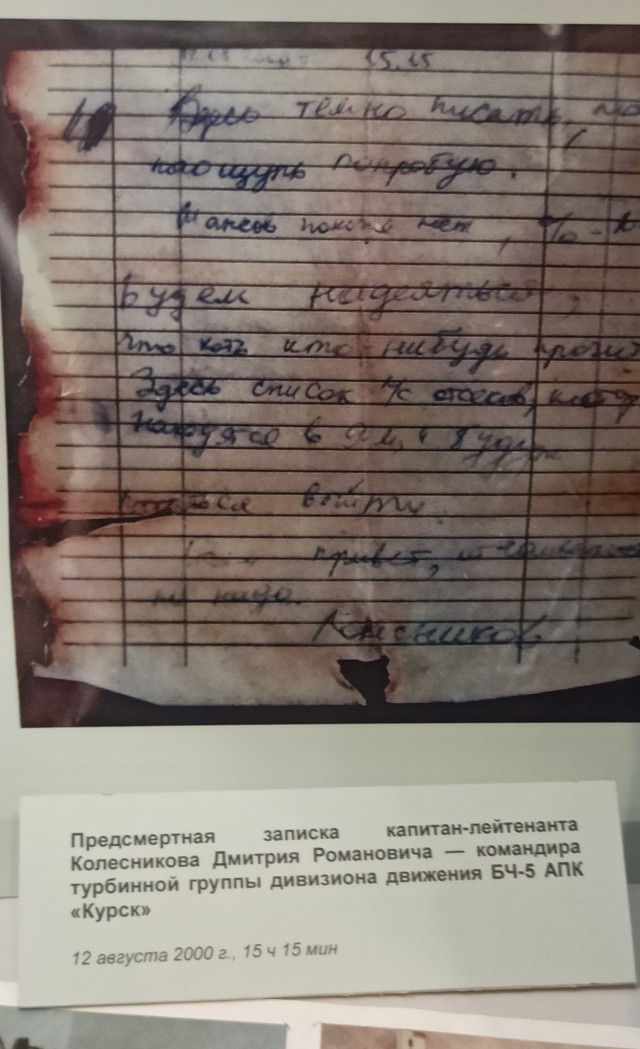 15.15
темно писать, но
наощупь попробую.
Шансов похоже нет, % - 
Будем надеяться,
что хоть кто-нибудь прочит
Здесь список л/с отсеков, котор
находятся в 9-м и будут
выйти.
привет, отчаиваться
не надо.
Колесников
Предсмертная записка капитан-лейтенанта
Колесникова Дмитрия Романовича — командира
турбинной группы дивизиона движения БЧ-5 АПК
«Курск»
12 августа 2000 г., 15 ч 15 мин